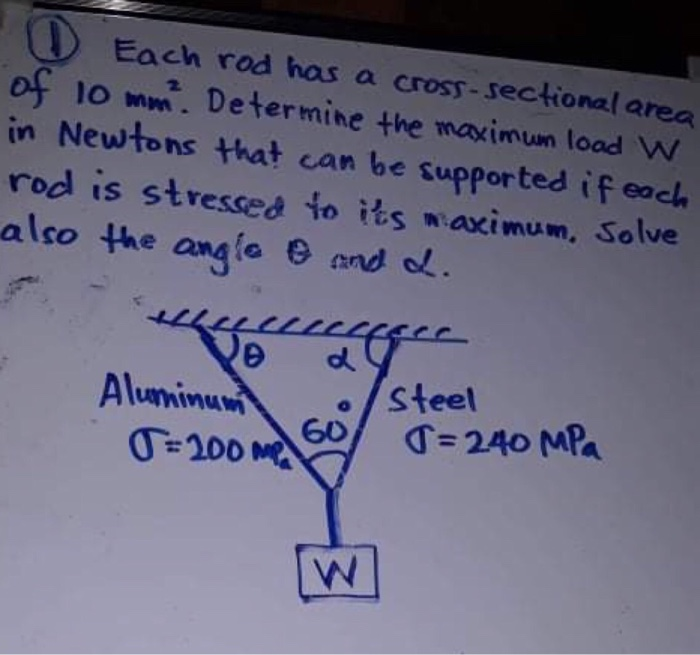 ① Each rod has a cross-sectional area
of 10 mm². Determine the maximum load W
in Newtons that can be supported if each
rod is stressed to its maximum. Solve
also the angle θ and α.
θ α
Aluminum 60° Steel
σ=200 MPa σ=240 MPa
W